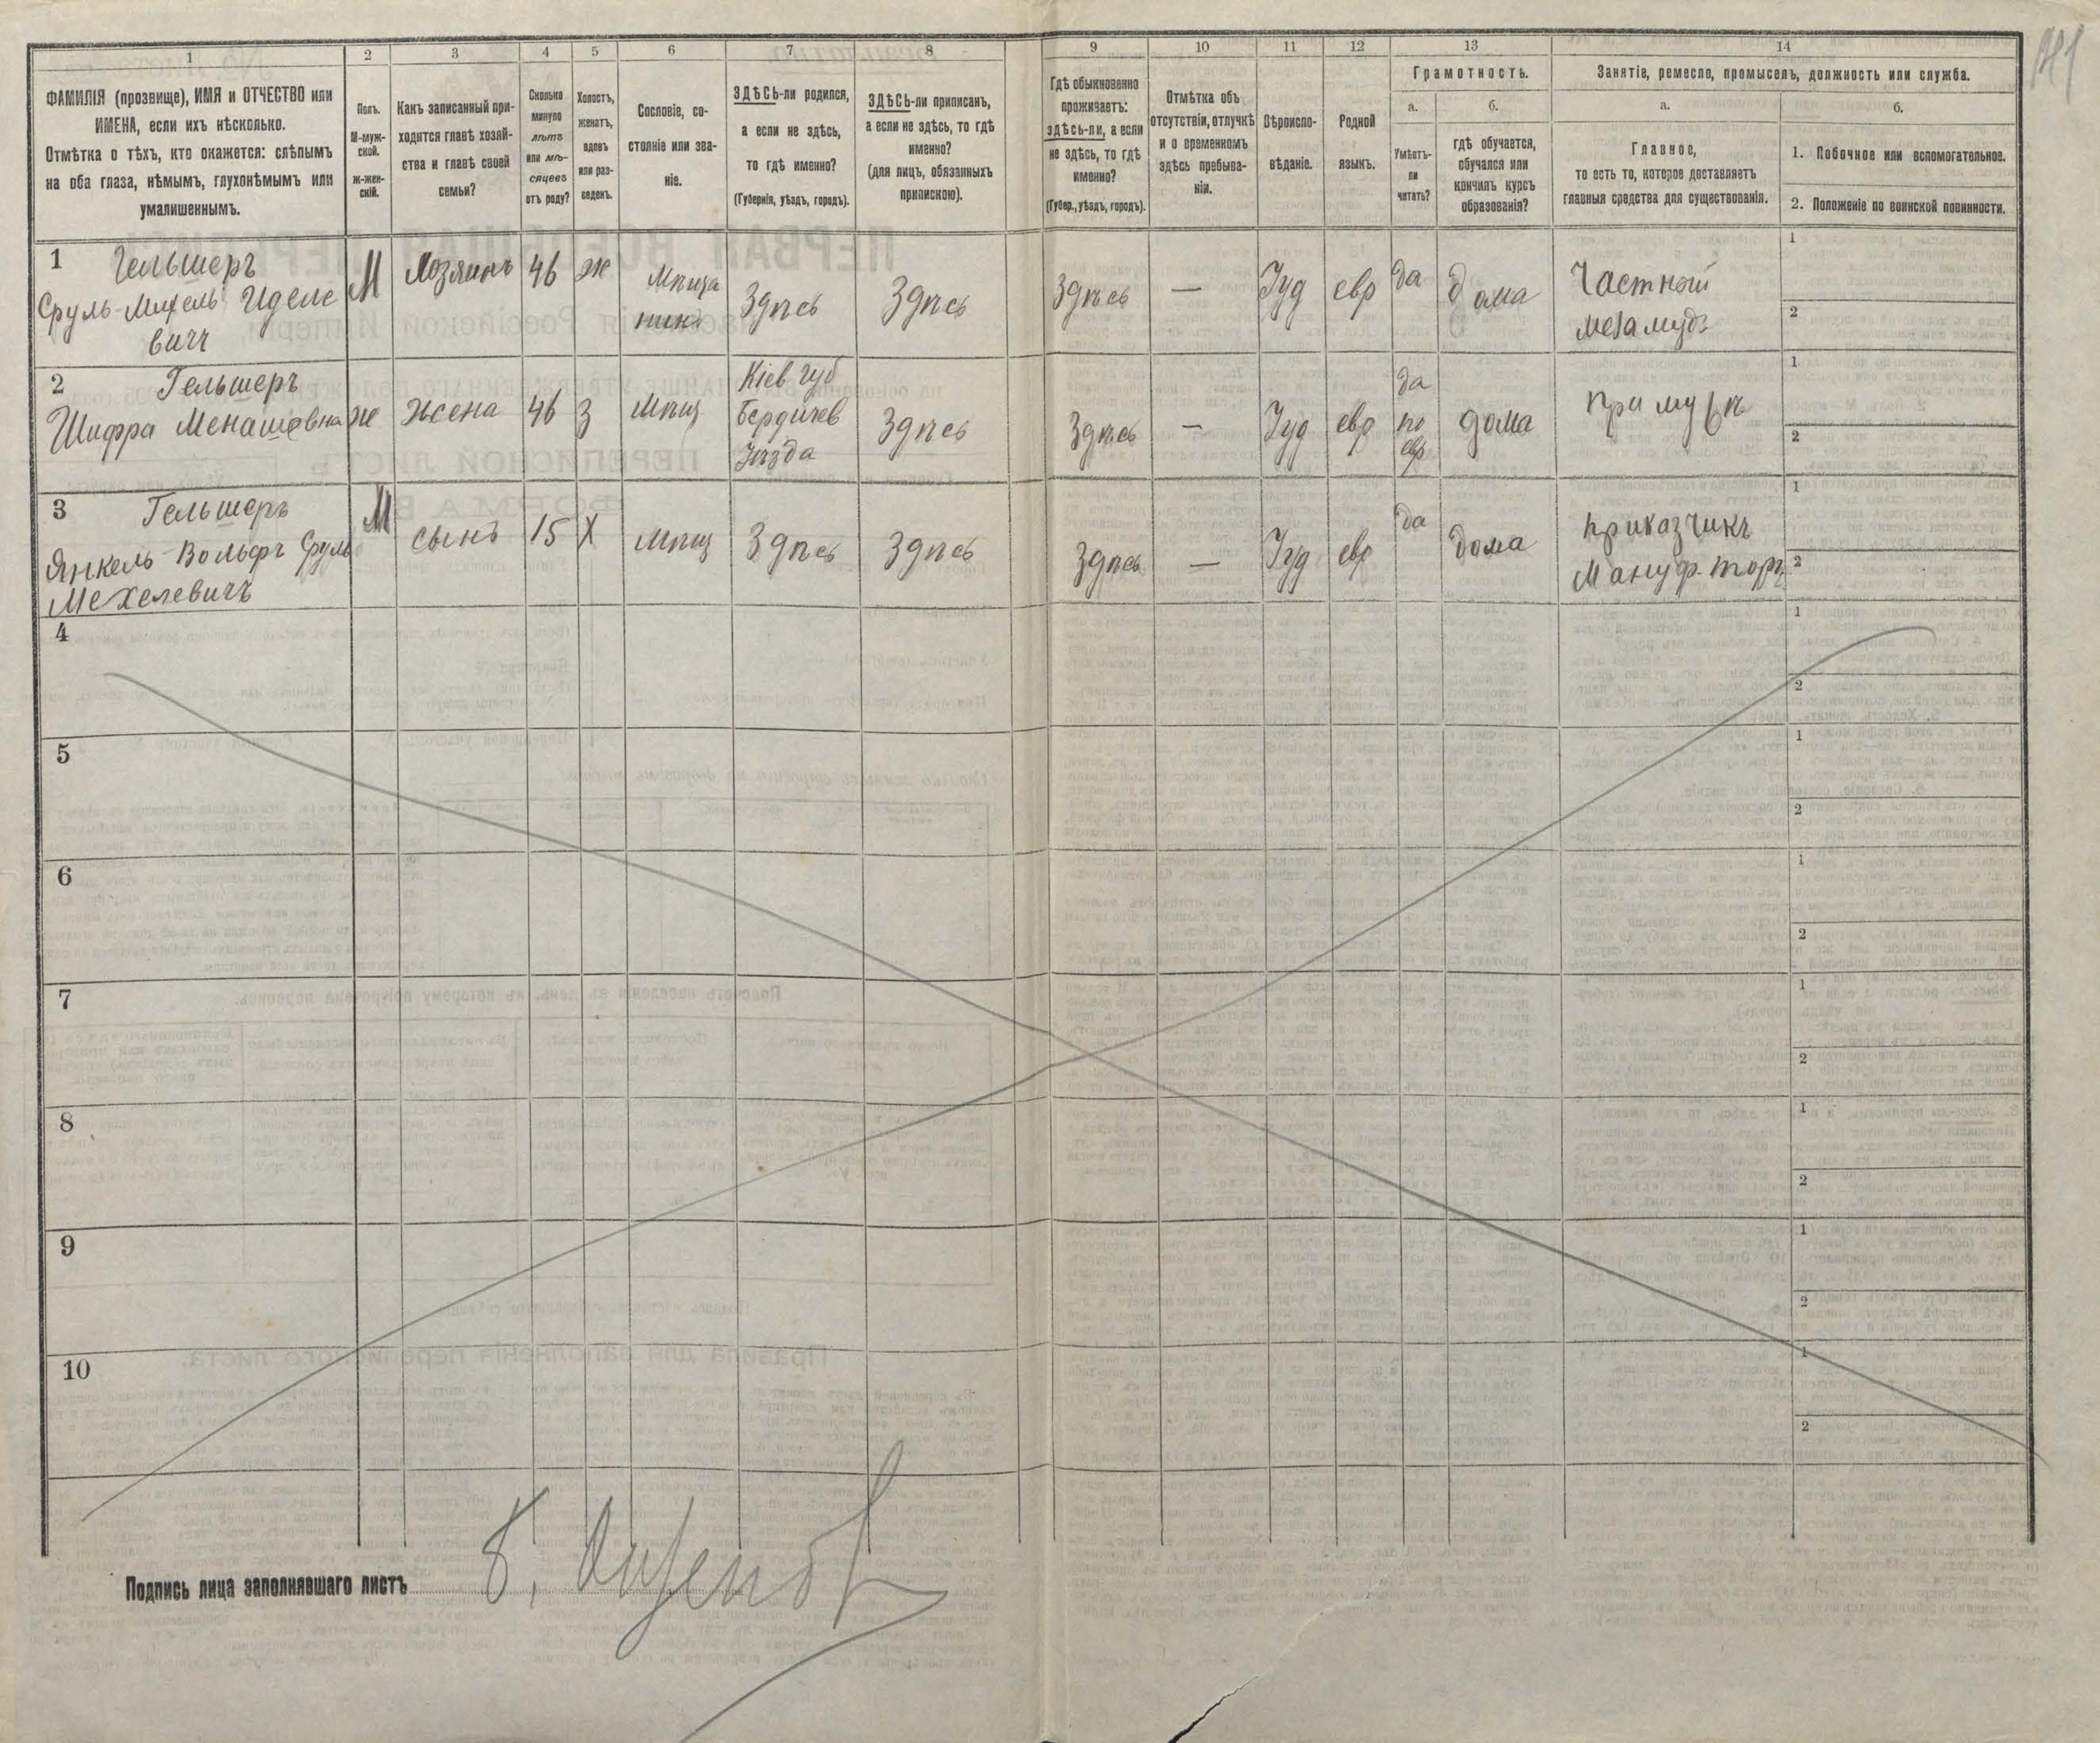 1
2
3
4
5
6
7
8
9
10
11
12
13
14
ФАМИЛІЯ (прозвище), ИМЯ и ОТЧЕСТВО или
ИМЕНА, если ихъ нѣсколько.
Отмѣтка о тѣхъ, кто окажется: слѣпымъ
на оба глаза, нѣмымъ, глухонѣмымъ или
умалишеннымъ.
Полъ.
М-муж-
ской.
Ж-жен-
скій.
Какъ записанный при-
ходится главѣ хозяй-
ства и главѣ своей
семьи?
Сколько
минуло
лѣтъ
или мѣ-
сяцевъ
отъ роду?
Холостъ,
женатъ,
вдовъ
или раз-
веденъ.
Сословіе, со-
стояніе или зва-
ніе.
ЗДѢСЬ-ли родился,
а если не здѣсь,
то гдѣ именно?
(Губернія, уѣздъ, городъ).
ЗДѢСЬ-ли приписанъ,
а если не здѣсь, то гдѣ
именно?
(для лицъ, обязанныхъ
припискою).
Гдѣ обыкновенно
проживаетъ:
здѣсь-ли, а если
не здѣсь, то гдѣ
именно?
(Губер., уѣздъ, городъ).
Отмѣтка объ
отсутствіи, отлучкѣ
и о временномъ
здѣсь пребыва-
ніи.
Вѣроиспо-
вѣданіе.
Родной
языкъ.
Грамотность.
а.
Умѣетъ-
ли
читать?
б.
гдѣ обучается,
обучался или
кончилъ курсъ
образованія?
Занятіе, ремесло, промыселъ, должность или служба.
а.
Главное,
то есть то, которое доставляетъ
главныя средства для существованія.
б.
1. Побочное или вспомогательное.
2. Положеніе по воинской повинности.
1 Гельшеръ
Сруль-Михель Иделе
вичъ
М
Хозяинъ
46
ж
Мѣща
нинъ
Здѣсь
Здѣсь
Здѣсь
—
Іуд
евр
да
дома
Частный
меламудъ
1
2
2 Гельшеръ
Шифра Менашевна
ж
жена
46
З
Мѣщ
Кіев губ
Бердичев
Уѣзда
Здѣсь
Здѣсь
—
Іуд
евр
да
по
евр
дома
при мужѣ
1
2
3 Гельшеръ
Янкель-Вольфъ Сруль
Мехелевичъ
М
сынъ
15
Х
Мѣщ
Здѣсь
Здѣсь
Здѣсь
—
Іуд
евр
да
дома
приказчикъ
Мануф. торг
1
2
4
1
2
5
1
2
6
1
2
7
1
2
8
1
2
9
1
2
10
1
2
Подпись лица заполнявшаго листъ